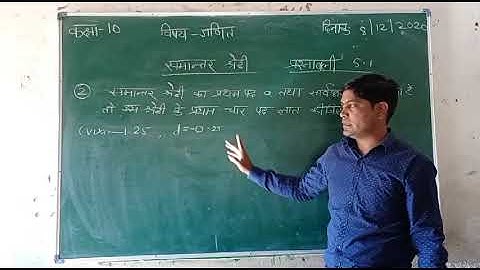 कक्षा-10 विषय-गणित दिनांक 5/12/2020
समान्तर श्रेढी प्रश्नावली 5.1
② समान्तर श्रेढी का प्रथम पद a तथा सार्व है
तो उस श्रेढी के प्रथम चार पद ज्ञात कीजिए
-1.25, d=-0.25